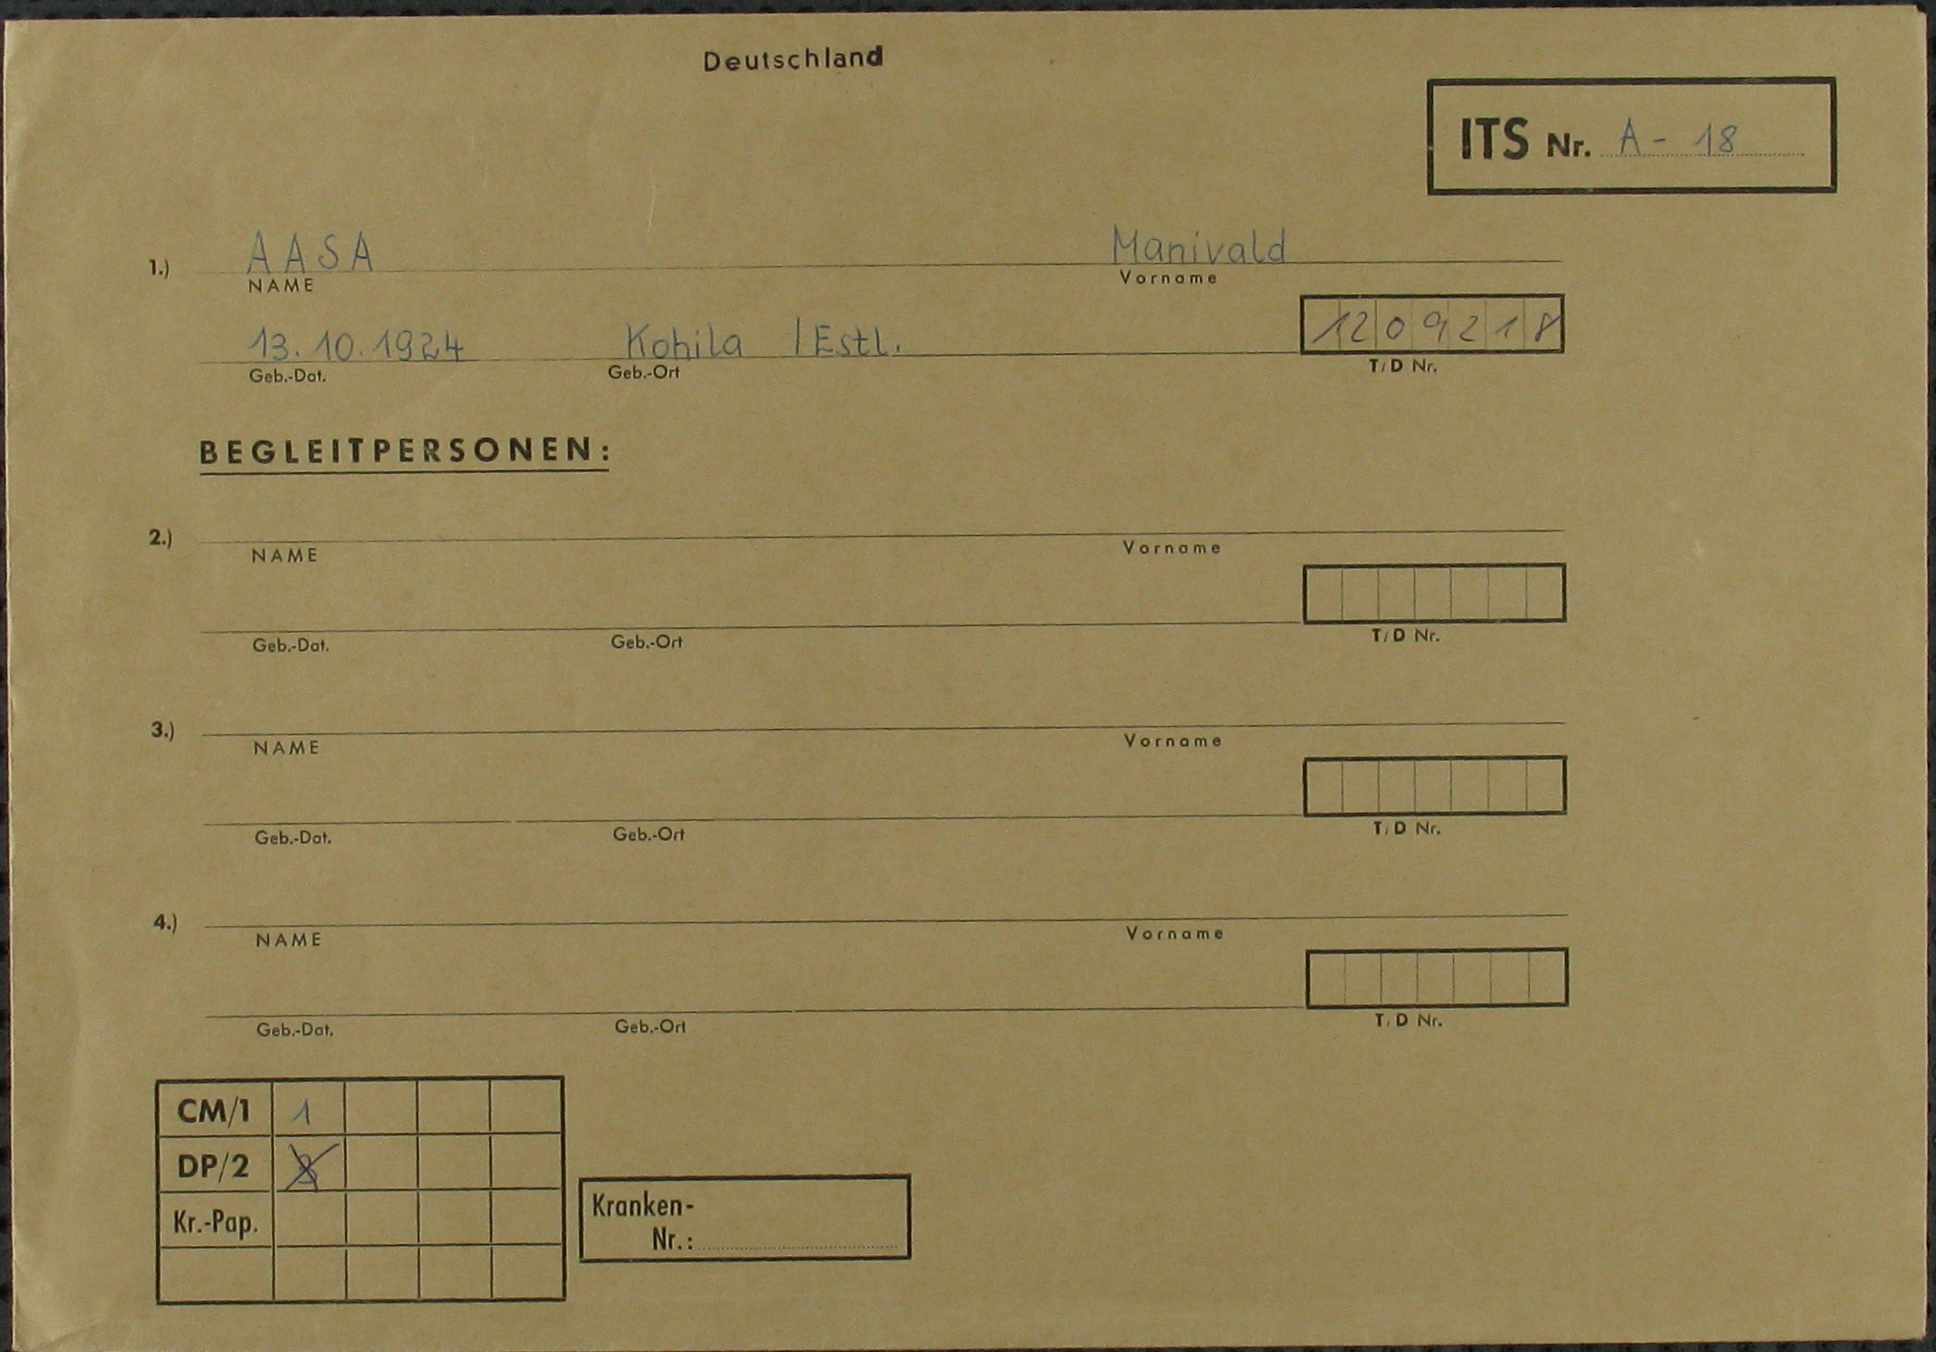 Deutschland
ITS Nr. A - 18
1.) AASA Manivald
NAME Vorname
13.10.1924 Kohila /Estl. 1209218
Geb.-Dat. Geb.-Ort T/D Nr.
BEGLEITPERSONEN:
2.)
NAME Vorname
Geb.-Dat. Geb.-Ort T/D Nr.
3.)
NAME Vorname
Geb.-Dat. Geb.-Ort T/D Nr.
4.)
NAME Vorname
Geb.-Dat. Geb.-Ort T/D Nr.
CM/1 1
DP/2
Kr.-Pap.
Kranken-
Nr.: